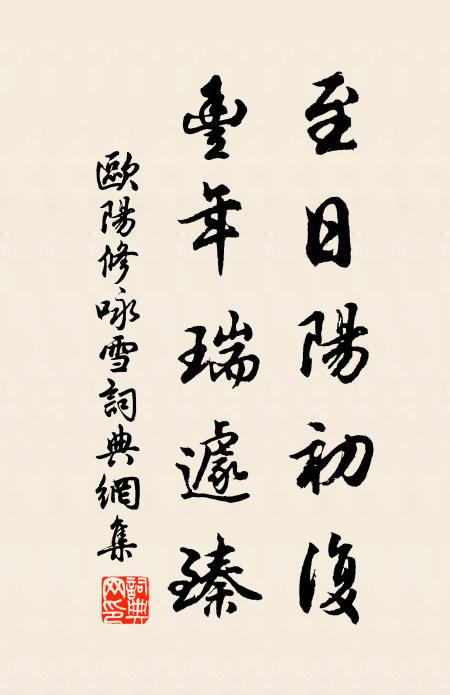 至日陽初復
豐年瑞遽臻
歐陽修咏雪詞典網集
詞典網印